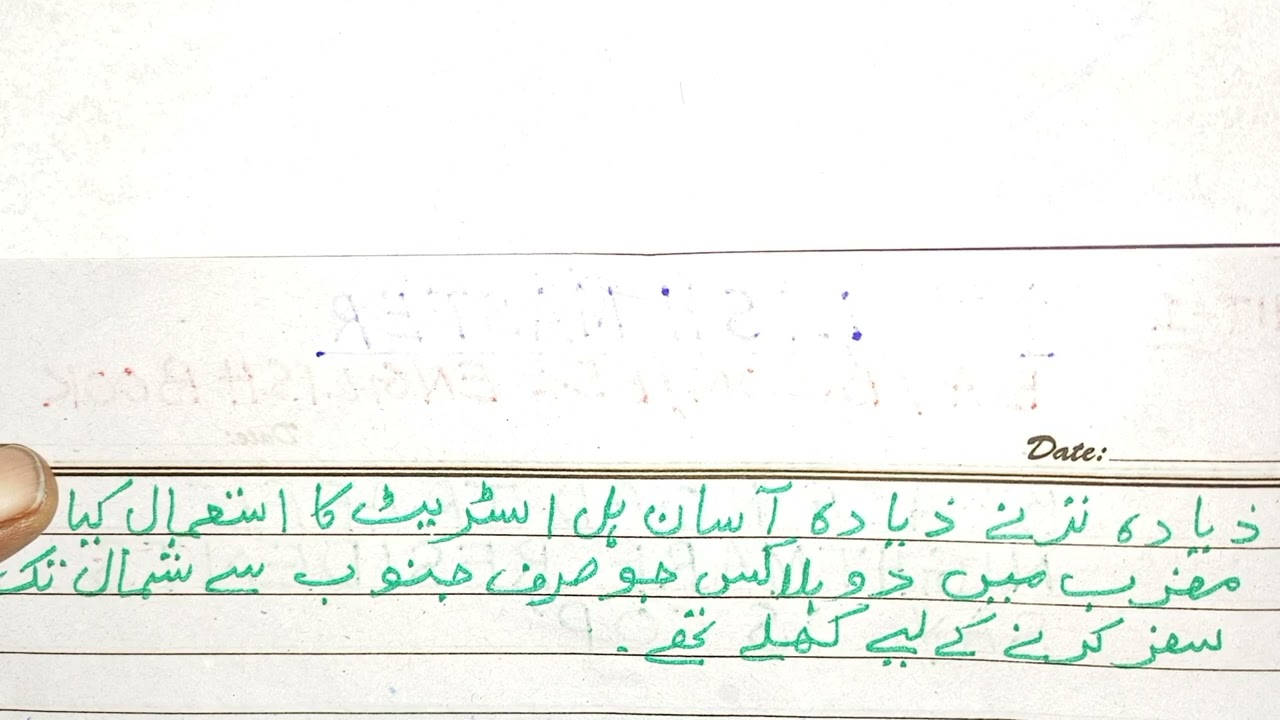 Date:
ذیادہ تر نے ذیادہ آسان ہل اسٹریٹ کا استعمال کیا
مغرب میں دو بلاکس جو صرف جنوب سے شمال تک
سفر کرنے کے لیے کھلے تھے۔